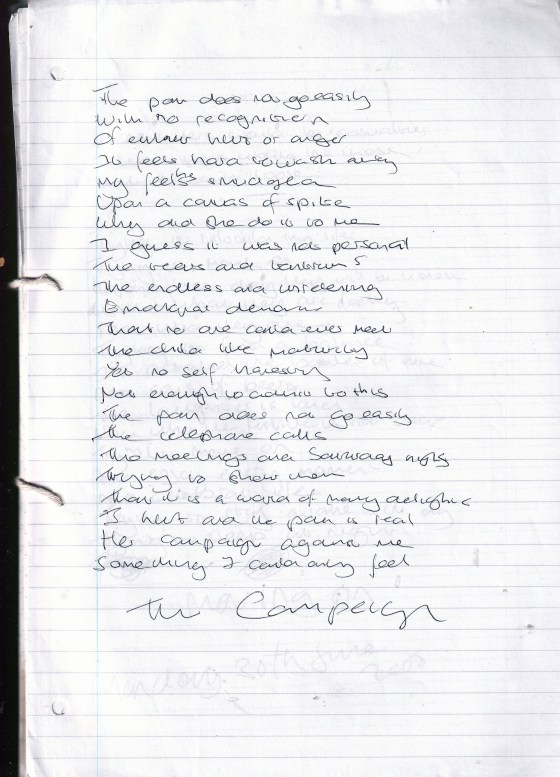 The pain does not go easily
With no recognition
Of either hurt or anger
It feels hard to wash away
My feelings smudged
Upon a canvas of spite
Why did she do it to me
I guess it was not personal
The tears and tantrums
The endless and unrelenting
Emotional demand
That no one could ever meet
The child like maturity
Yet no self honesty
Not enough to admit to this
The pain does not go easily
The telephone calls
The meetings and Saturday nights
Trying to show them
That it is a world of many delights
I hurt and the pain is real
Her campaign against me
Something I could only feel
The Campaign